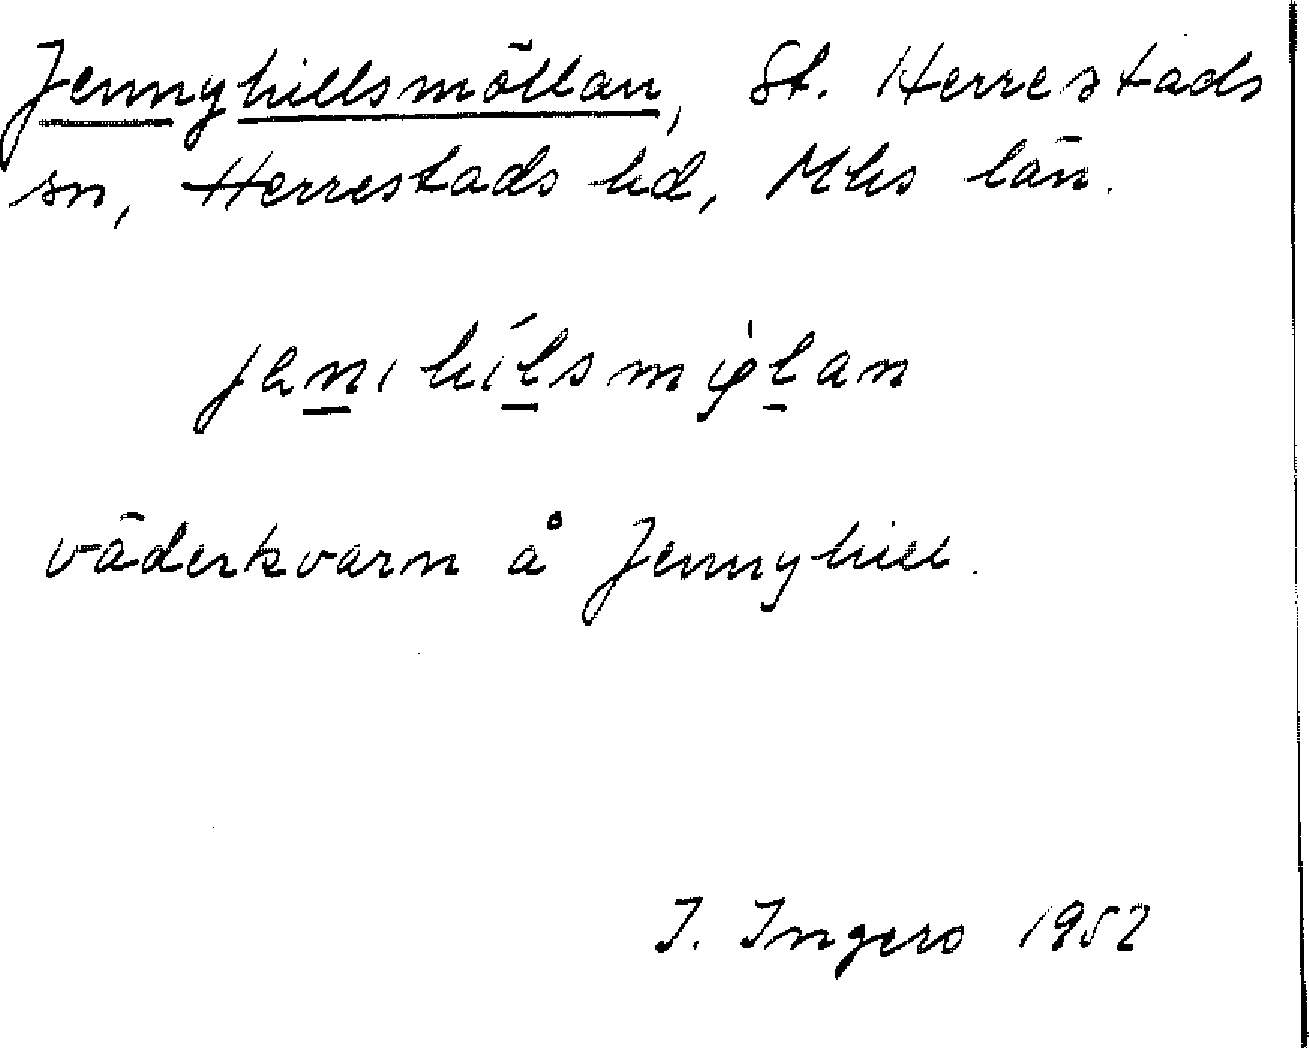 Jennyhillsmöllan, St. Herrestads
sn, Herrestads hd, Mhs län.
jænıhílsmø̀lan
väderkvarn å Jennyhill.
I. Ingers 1952